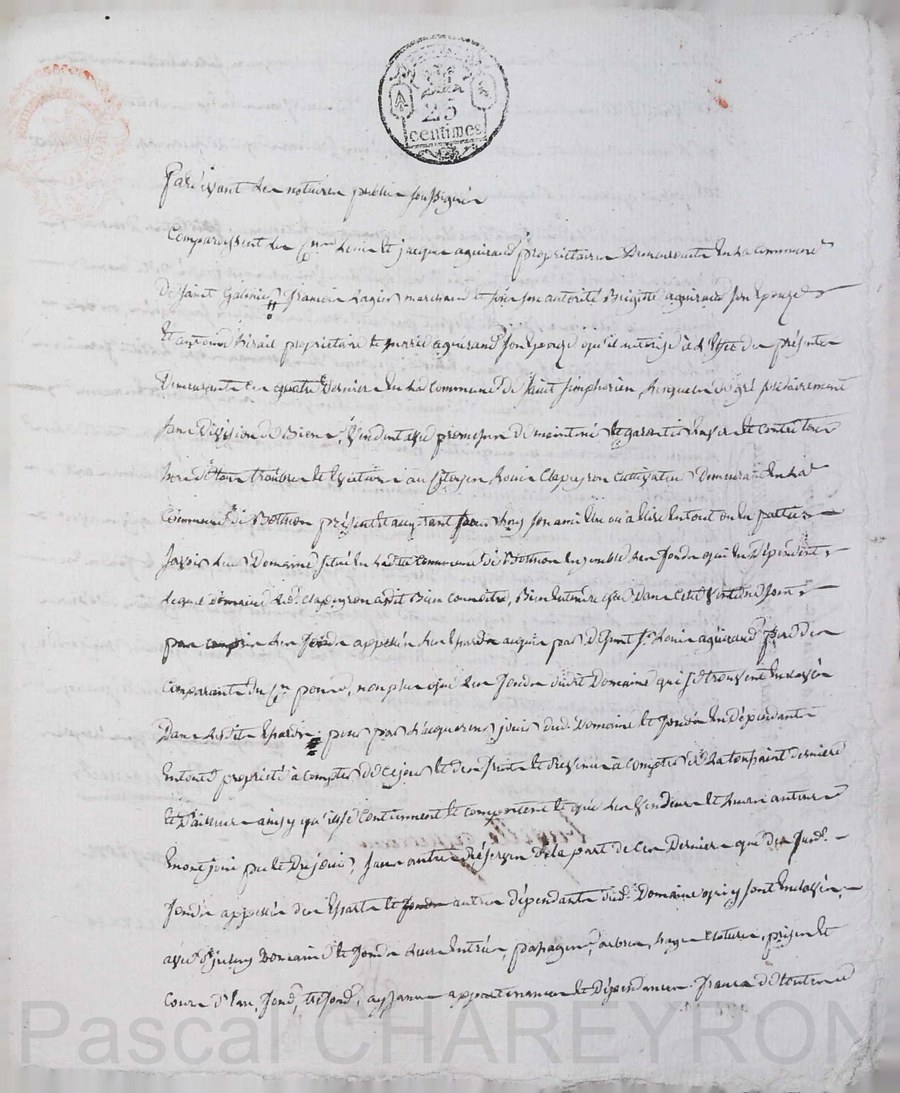 25
centimes
Pardevant les notaires publics soussignés
Comparoissent les Cns Louis et jacques aguiraud propriétaires demeurants en la commune
de saint Galmier françois Lager marchand et sous son autorité Brigitte aguiraud son épouze
Et antoine propriétaire et marie aguiraud son épouze qu'il autorise à l'effet des présentes
Demeurants ces quatre derniers en la commune de saint simphorien lesquels de gré solidairement
sans division de Biens, vendent avec promesse de maintenir et garantir envers et contre tous
hors de tous troubles et évictions au Citoyen Clapeyron cultivateur demeurant en la
Commune de Bothéon présent et acceptant pour luy son ami élu ou à élire en tout ou en partie
savoir leur Domaine situé en ladite commune de Bothéon ensemble les fonds qui en dépendent
lequel domaine led. Clapeyron a dit bien connoître, Bien entendu que dans cette vente ne sont
pas compris les fonds appellés les Essards acquis par défunt Sr Louis aguiraud père des
comparants du Sr non plus que les fonds dudit Domaine qui se trouvent enclavés
Dans lesdits Essards pour par l'acquereur jouir dud. Domaine et fonds en dépendants
En toute propriété à compter de ce jour et des fruits et revenus à compter de la toussaint dernière
et d'ailleurs ainsy qu'ils se contiennent et comportent et que les vendeurs et leurs auteurs
en ont joui pu et dû jouir, sans autres réserves de la part de ces Derniers que des susd.
fonds appellés des Essarts et fonds autres dépendants dud. Domaine qui y sont enclavés
avec desdits Domaine et fonds leurs entrées, passages, arbres, hayes, clotures, prises et
cours d'eau, fond, trefond, aysances appartenances et dépendances. francs de toutes
Pascal CHAREYRON